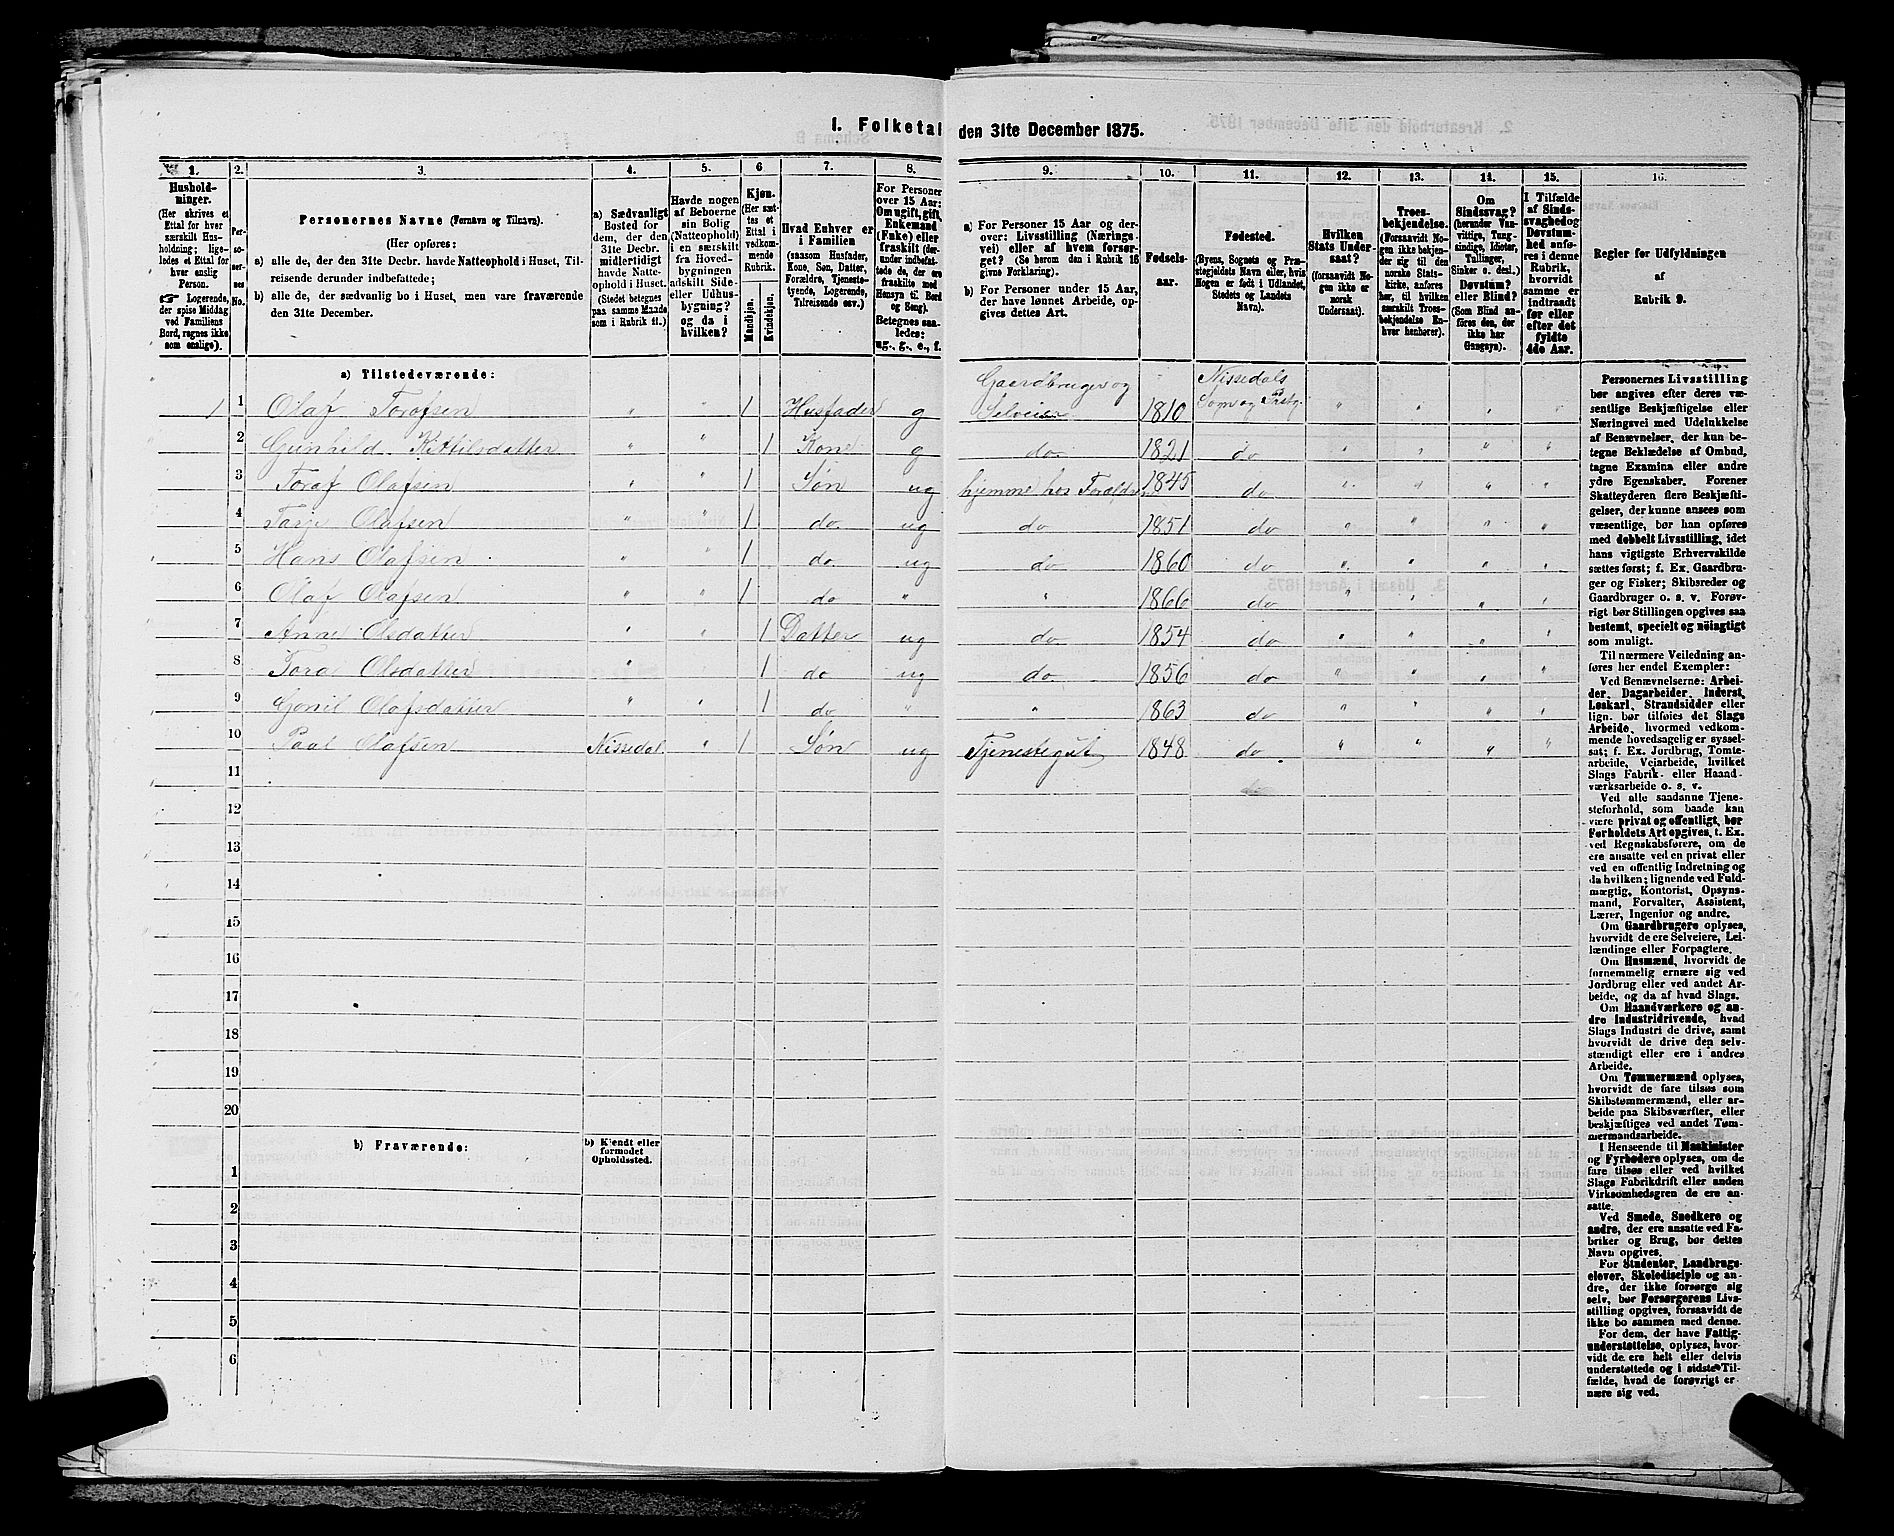 1. Folketal den 31te December 1875.
1. 2. 3. 4. 5. 6 7. 8. 9. 10. 11. 12. 13. 14. 15. 16.
Hushold-
ninger.
(Her skrives et
Ettal for hver
særskilt Hus-
holdning; lige-
ledes et Ettal for
hver enslig
Person.
☞ Logerende,
der spise Middag
ved Familiens
Bord, regnes ikke
som enslige).
Per-
so-
ner-
nes
No.
Personernes Navne (Fornavn og Tilnavn).
(Her opføres:
a) alle de, der den 31te Decbr. havde Natteophold i Huset, Til-
reisende derunder indbefattede;
b) alle de, der sædvanlig bo i Huset, men vare fraværende
den 31te December.
a) Sædvanligt
Bosted for
dem, der den
31te Decbr.
midlertidigt
havde Natte-
ophold i Huset.
(Stedet betegnes
paa samme Maade
som i Rubrik 11.)
Havde nogen
af Beboerne
sin Bolig
(Natteophold)
i en særskilt
fra Hoved-
bygningen
adskilt Side-
eller Udhus-
bygning?
og da i
hvilken?
Kjøn.
(Her sæt-
tes et
Ettal i
vedkom-
mende
Rubrik.
Mandkjøn.
Kvindekjøn.
Hvad Enhver er
i Familien
(saasom Husfader,
Kone, Søn, Datter,
Forældre, Tjeneste-
tyende, Logerende,
Tilreisende osv.)
For Personer
over 15 Aar:
Om ugift, gift,
Enkemand
(Enke) eller
fraskilt (der-
under indbefat-
tede de, der ere
fraskilte med
Hensyn til Bord
og Seng).
Betegnes saa-
ledes:
ug., g., e., f.
a) For Personer 15 Aar og der-
over: Livsstilling (Nærings-
vei) eller af hvem forsør-
get? (Se herom den i Rubrik 16
givne Forklaring).
b) For Personer under 15 Aar,
der have lønnet Arbeide, op-
gives dettes Art.
Fødsels-
aar.
Fødested.
(Byens, Sognets og Præ-
stegjeldets Navn eller, hvis
Nogen er født i Udlandet,
Stedets og Landets
Navn).
Hvilken
Stats Under-
saat?
(forsaavidt No-
gen ikke er
norsk
Undersaat).
Troes-
bekjendelse.
(Forsaavidt No-
gen ikke bekjen-
der sig til den
norske Stats-
kirke, anføres
her, til hvilken
særskilt Troes-
bekjendelse En-
hver henhører).
Om
Sindssvag?
(herunder Van-
vittige, Tung-
sindige, Idioter,
Tullinger,
Sinker o. desl.)
Døvstum?
eller Blind?
(Som Blind an-
føres den, der
ikke har
Gangsyn).
I Tilfælde
af Sinds-
svaghed og
Døvstum-
hed anfø-
res i denne
Rubrik,
hvorvidt
samme er
indtraadt
før eller
efter det
fyldte
4de Aar.
Regler for Udfyldningen
af
Rubrik 9.
a) Tilstedeværende:
1 1 Olaf Torafsen " " 1 Husfader g Gaardbruger og Selveier 1810 Nissedals Sogn og Prstg. " " " "
2 Gunhild Kittilsdatter " " 1 Kone g do 1821 do " " " "
3 Toraf Olafsen " " 1 Søn ug hjemme hos Forældre 1845 do " " " "
4 Tarje Olafsen " " 1 do ug do 1851 do " " " "
5 Hans Olafsen " " 1 do ug do 1860 do " " " "
6 Olaf Olafsen " " 1 do " " 1866 do " " " "
7 Anne Olsdatter " " 1 Datter ug do 1854 do " " " "
8 Tora Olsdatter " 1 do ug do 1856 do " " " "
9 Gonil Olafsdatter " " 1 do " " 1863 do " " " "
10 Paal Olafsen Nissedal " 1 Søn ug Tjenestegut 1848 do " " " "
11
12
13
14
15
16
17
18
19
20
b) Fraværende:
b) Kjendt eller
formodet
Opholdssted.
1
2
3
4
5
6
Personernes Livsstilling
bør angives efter deres væ-
sentlige Beskjæftigelse eller
Næringsvei med Udelukkelse
af Benævnelser, der kun be-
tegne Beklædelse af Ombud,
tagne Examina eller andre
ydre Egenskaber. Forener
Skatteyderen flere Beskjæfti-
gelser, der kunne ansees som
væsentlige, bør han opføres
med dobbelt Livsstilling, idet
hans vigtigste Erhvervskilde
sættes først; f. Ex. Gaardbru-
ger og Fisker; Skibsreder og
Gaardbruger o. s. v. Forøv-
rigt bør Stillingen opgives saa
bestemt, specielt og nöiagtigt
som muligt.
Til nærmere Veiledning an-
føres her endel Exempler:
Ved Benævnelserne: Arbei-
der, Dagarbeider, Inderst,
Løskarl, Strandsidder eller
lign. bør tilføies det Slags
Arbeide, hvormed vedkom-
mende hovedsagelig er syssel-
sat; f. Ex. Jordbrug, Tomte-
arbeide, Veiarbeide, hvilket
Slags Fabrik- eller Haand-
værksarbeide o. s. v.
Ved alle saadanne Tjene-
steforhold, som baade kan
være privat og offentligt, bør
Forholdets Art opgives, t. Ex.
ved Regnskabsførere, om de
ere ansatte ved en privat eller
ved en offentlig Indretning og
da hvilken; lignende ved Fuld-
mægtig, Kontorist, Opsyns-
mand, Forvalter, Assistent,
Lærer, Ingeniør og andre.
Om Gaardbrugere oplyses,
hvorvidt de ere Selveiere, Lei-
lændinge eller Forpagtere.
Om Husmænd, hvorvidt de
fornemmelig ernære sig ved
Jordbrug eller ved andet Ar-
beide, og da af hvad Slags.
Om Haandværkere og an-
dre Industridrivende, hvad
Slags Industri de drive, samt
hvorvidt de drive den selv-
stændigt eller ere i andres
Arbeide.
Om Tømmermænd oplyses,
hvorvidt de fare tilsøs som
Skibstømmermænd, eller ar-
beide paa Skibsværfter, eller
beskjæftiges ved andet Tøm-
mermandsarbeide.
I Henseende til Maskinister
og Fyrbødere oplyses, om de
fare tilsøs eller ved hvilket
Slags Fabrikdrift eller anden
Virksomhedsgren de ere an-
satte.
Ved Smede, Snedkere og
andre, der ere ansatte ved Fa-
briker og Brug, bør dettes
Navn opgives.
For Studenter, Landbrugs-
elever, Skoledisciple og an-
dre, der ikke forsørge sig
selv, bør Forsørgerens Livs-
stilling opgives, forsaavidt de
ikke bo sammen med denne.
For dem, der have Fattig-
understøttelse, oplyses, hvor-
vidt de ere helt eller delvis
understøttede og i sidste Til-
fælde, hvad de forøvrigt er-
nære sig ved.